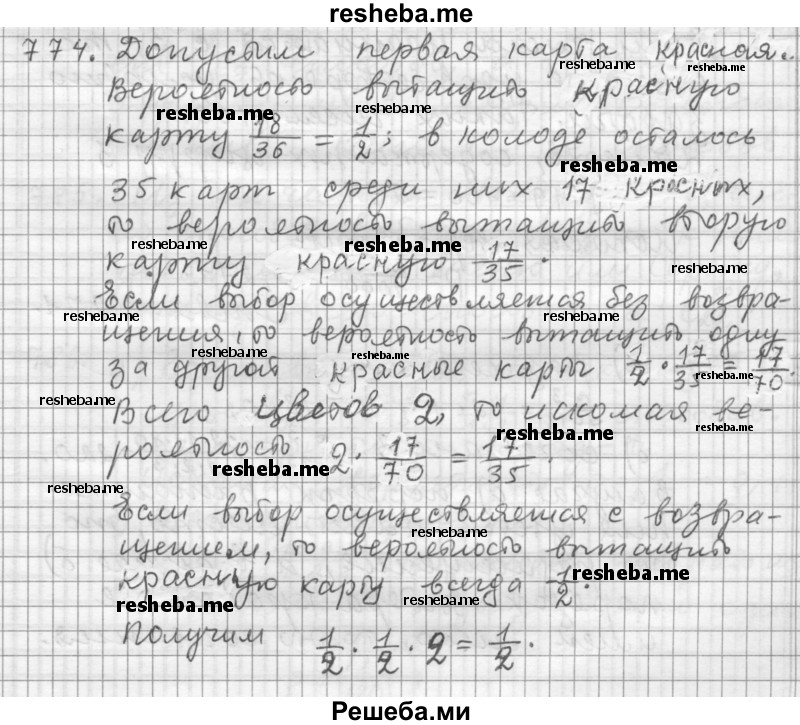 resheba.me
774. Допустим первая карта красная.
resheba.me resheba.me
Вероятность вытащить красную
resheba.me resheba.me resheba.me
карту 18/36 = 1/2; в колоде осталось
resheba.me
35 карт среди них 17 красных,
то вероятность вытащить вторую
resheba.me resheba.me
карту красную 17/35.
resheba.me
Если выбор осуществляется без возвра-
resheba.me resheba.me
щения, то вероятность вытащить одну
resheba.me resheba.me
за другой красные карты 1/2 · 17/35 = 17/70.
resheba.me
resheba.me
Всего цветов 2, то искомая ве-
resheba.me resheba.me
роятность 2 · 17/70 = 17/35.
resheba.me
resheba.me
Если выбор осуществляется с возвра-
resheba.me
щением, то вероятность вытащить
resheba.me
красную карту всегда 1/2.
resheba.me resheba.me resheba.me
Получим 1/2 · 1/2 · 2 = 1/2.
Решеба.ми